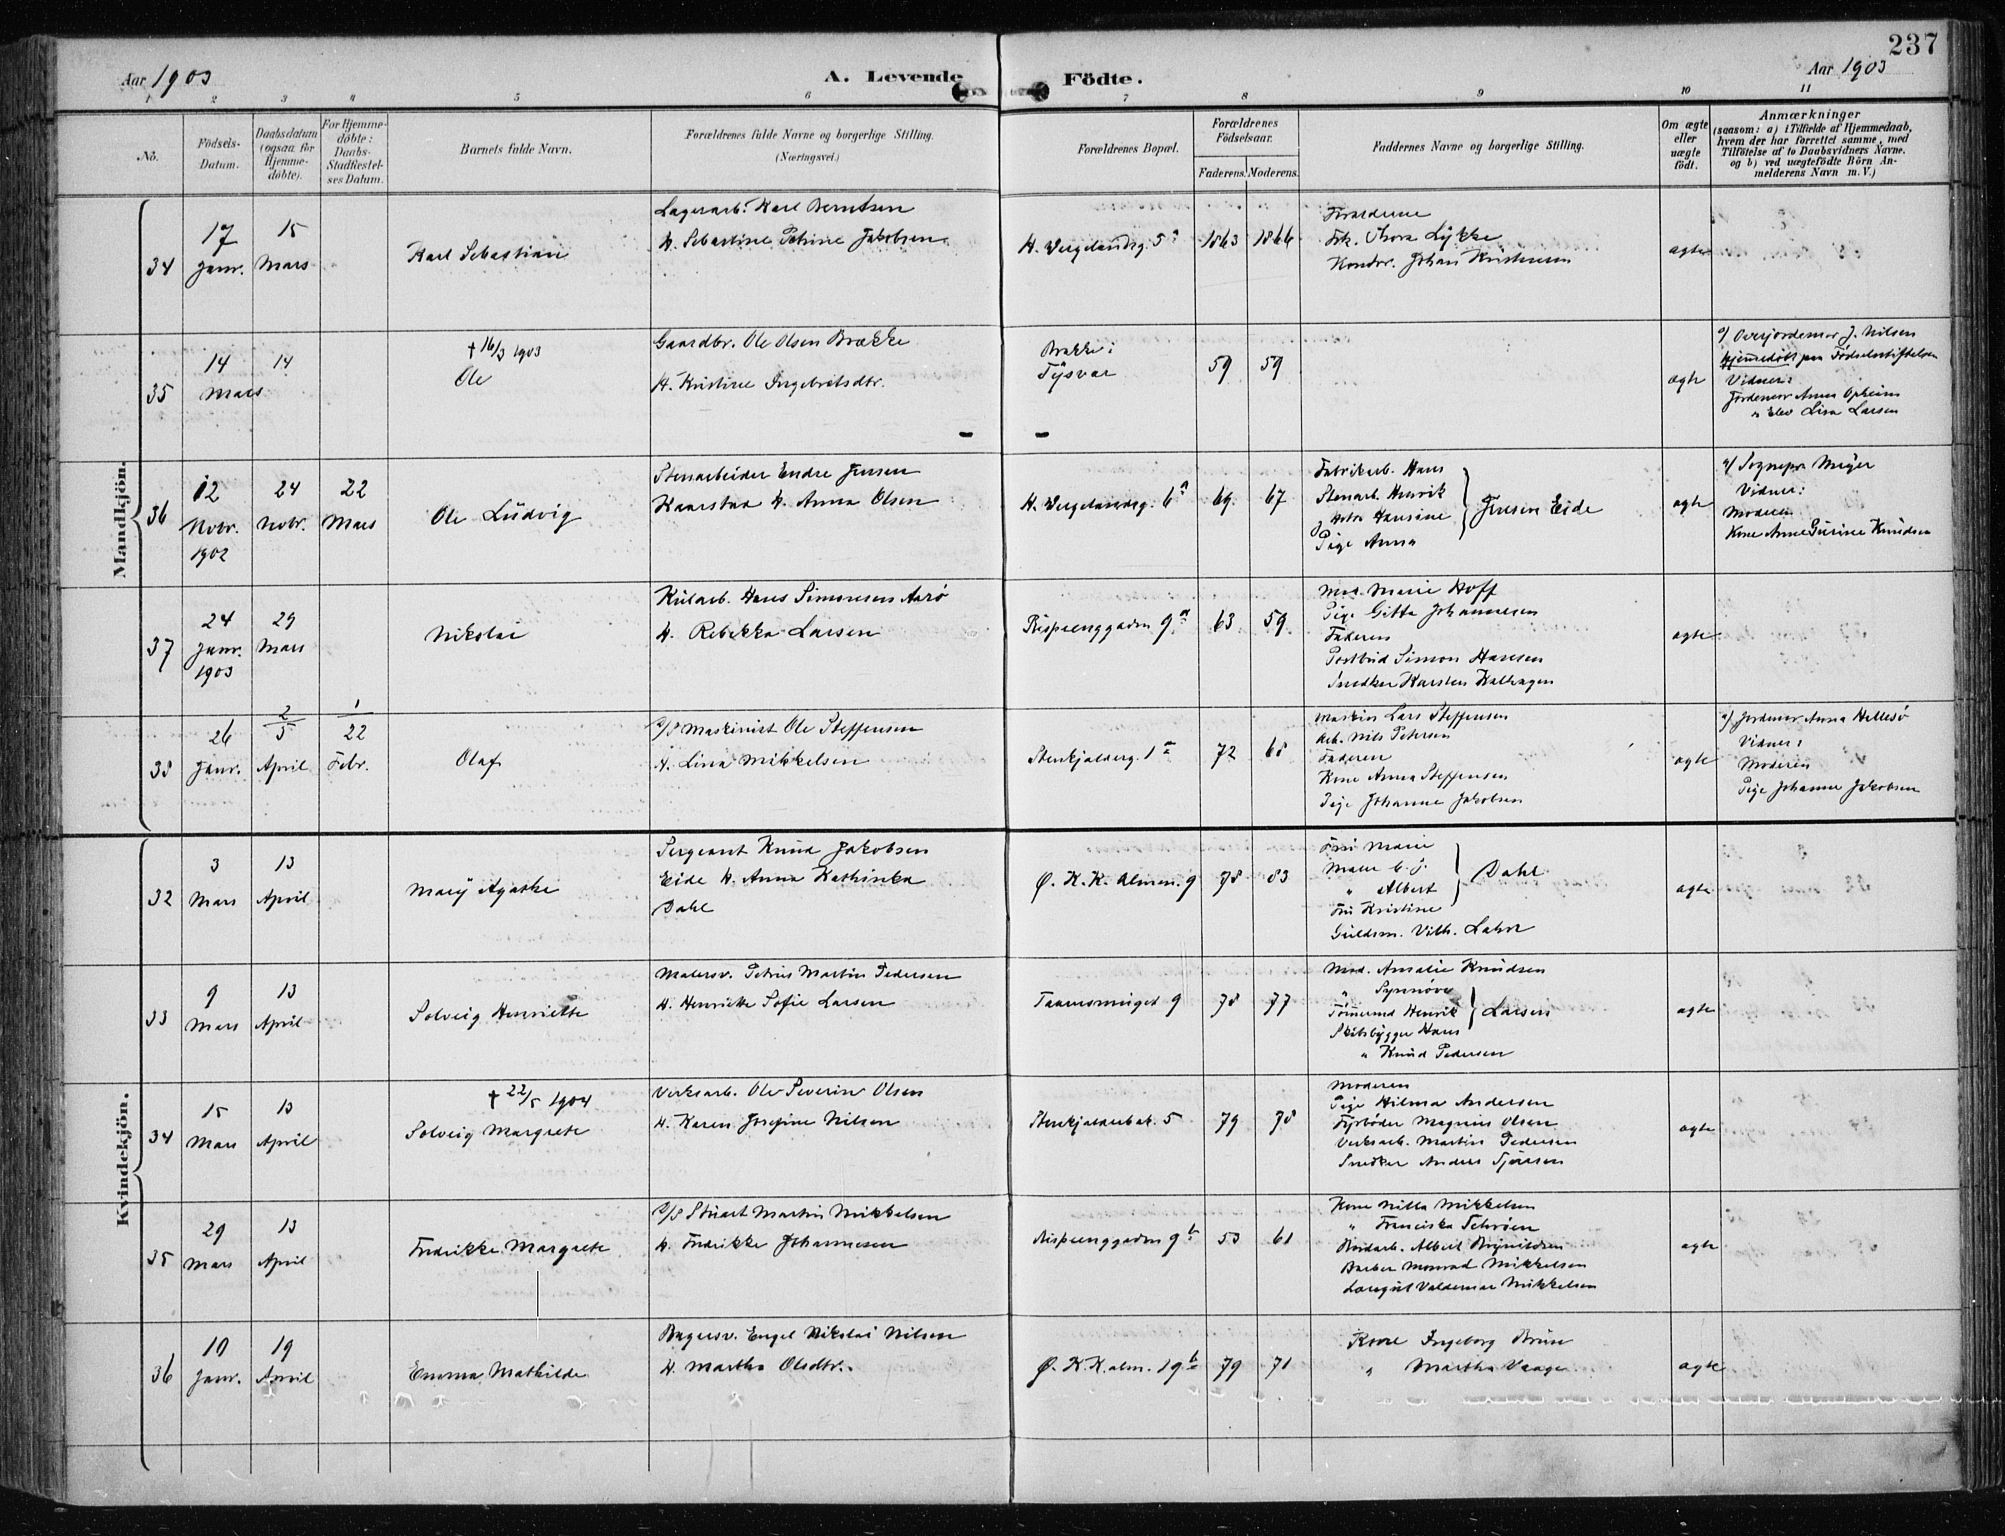 237
Aar 1903 A. Levende Födte. Aar 1903
1 2 3 4 5 6 7 8 9 10 11
No.
Födsels-Datum.
Daabsdatum (ogsaa for Hjemmedøbte).
For Hjemmedøbte: Daabs-Stadfæstelses Datum.
Barnets fulde Navn.
Forældrenes fulde Navne og borgerlige Stilling. (Næringsvei.)
Forældrenes Bopæl.
Forældrenes Fødselsaar. Faderens. Moderens.
Faddernes Navne og borgerlige Stilling.
Om ægte eller uægte født.
Anmærkninger (saasom: a) i Tilfælde af Hjemmedaab, hvem der har forrettet samme, med Tilføielse af to Daabsvidners Navne, og b) ved uægtefødte Børn Anmelderens Navn m. V.)
Mandkjön.
34 17 Janr. 15 Mars
Karl Sebastian
Lagerarb. Karl Berntsen
H. Sebastine Petrine Jakobsen
H. Vergelandsg. 5 1863 1866
Forældrene
Frk. Thora Lykke
Kondor. Johan Kristensen
ægte
35 14 Mars 14
† 16/3 1903
Ole
Gaardbr. Ole Olsen Brække
H. Kristine Ingebretsdtr.
Brække i
Tysvær
59 59
ægte
a/ Overjordemor J. Nilsen
Hjemmedøbt paa Fødselsstiftelsen
Vidner:
Jordemor Anna Opheim
" Elev Lina Larsen
36 12 Novbr. 1902 24 Novbr. 22 Mars
Ole Ludvig
Stenarbeider Endre Jensen
Kaarstad H. Anna Olsen
H. Vergelandsg. 6a 69 67
Fabrikarb. Hans
Stenarb. Henrik
Hansine
Pige Anna
Jensen Eide
ægte
a/ Sognepr. Meyer
Vidner:
Moderen
Kone Anne Gurine Knudsen
37 24 Janr. 1903 29 Mars
Nikolai
Kularb. Hans Simonsen Aarø
H. Rebekka Larsen
Rispeenggaden 9a 63 59
Mad. Marie Hoff
Pige Gitta Johannesen
Faderen
Postbud Simon Hansen
Snedker Karsten Kalhagen
ægte
38 26 Janr. 2/5 April 1/22 Febr.
Olaf
D/S Maskinist Ole Steffensen
H. Lina Mikkelsen
Stenkjelderg. 1 72 68
Maskin Lars Steffensen
Arb. Nils Petersen
Faderen
Kone Anna Steffensen
Pige Johanne Jakobsen
ægte
a/ Jordemor Anna Hellesø
Vidner:
Moderen
Pige Johanne Jakobsen
Kvindekjön.
32 3 Mars 13 April
Mary Agathe
Sergeant Knud Jakobsen
Eide H. Anna Kathinka
Dahl
Ø. K. K. Almen. 9 78 83
Fru Marie
Maler C. J.
" Albert
Fru Kristine
Dahl
Guldsm. Vilh.
ægte
33 9 Mars 13 April
Solveig Henriette
Malersv. Petrus Martin Pedersen
H. Henriette Sofie Larsen
9 78 77
Mad. Amalie Knudsen
" Synnøve
Tømmermd Henrik
Skibsbygger Hans
Larsen
" Knud Pedersen
ægte
34 15 Mars 13 April
† 22/5 1904
Solveig Margrete
Verksarb. Ole Severin Olsen
H. Karen Josefine Nilsen
Stenkjelderbak. 5 79 78
Moderen
Pige Hilma Andersen
Fyrbøder Magnus Olsen
Verksarb. Martin Pedersen
Snedker Anders
ægte
35 29 Mars 13 April
Fredrikke Margrete
D/S Stuart Martin Mikkelsen
H. Fredrikke Johannesen
Rispeenggaden 9b 53 61
Kone Nilla Mikkelsen
" Franciska
Albert Brynildsen
Barber Monrad Mikkelsen
Valdemar Mikkelsen
ægte
36 10 Janr. 19 April
Emma Mathilde
Bagersv. Engel Nikolai Nilsen
H. Martha Olsdtr.
Ø. K. K. alm. 19b 79 71
Kone Ingeborg Brun
" Martha Vaage
ægte